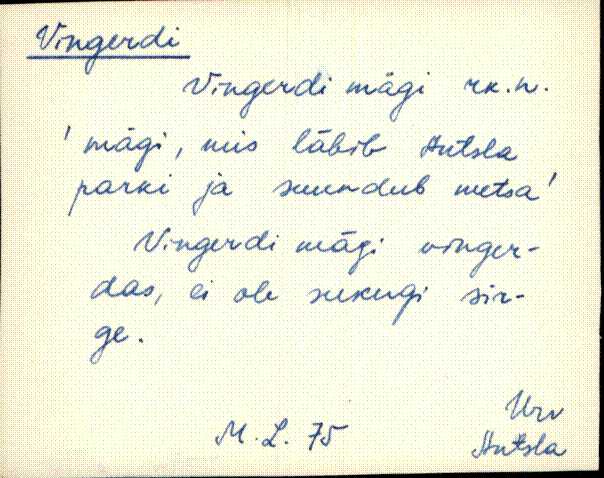 Vingerdi
Vingerdi mägi rk. n.
'mägi, mis läbib Antsla
parki ja suundub metsa'
Vingerdi mägi vinger-
das, ei ole sukugi sir-
ge.
Urv
M. L. 75 Antsla